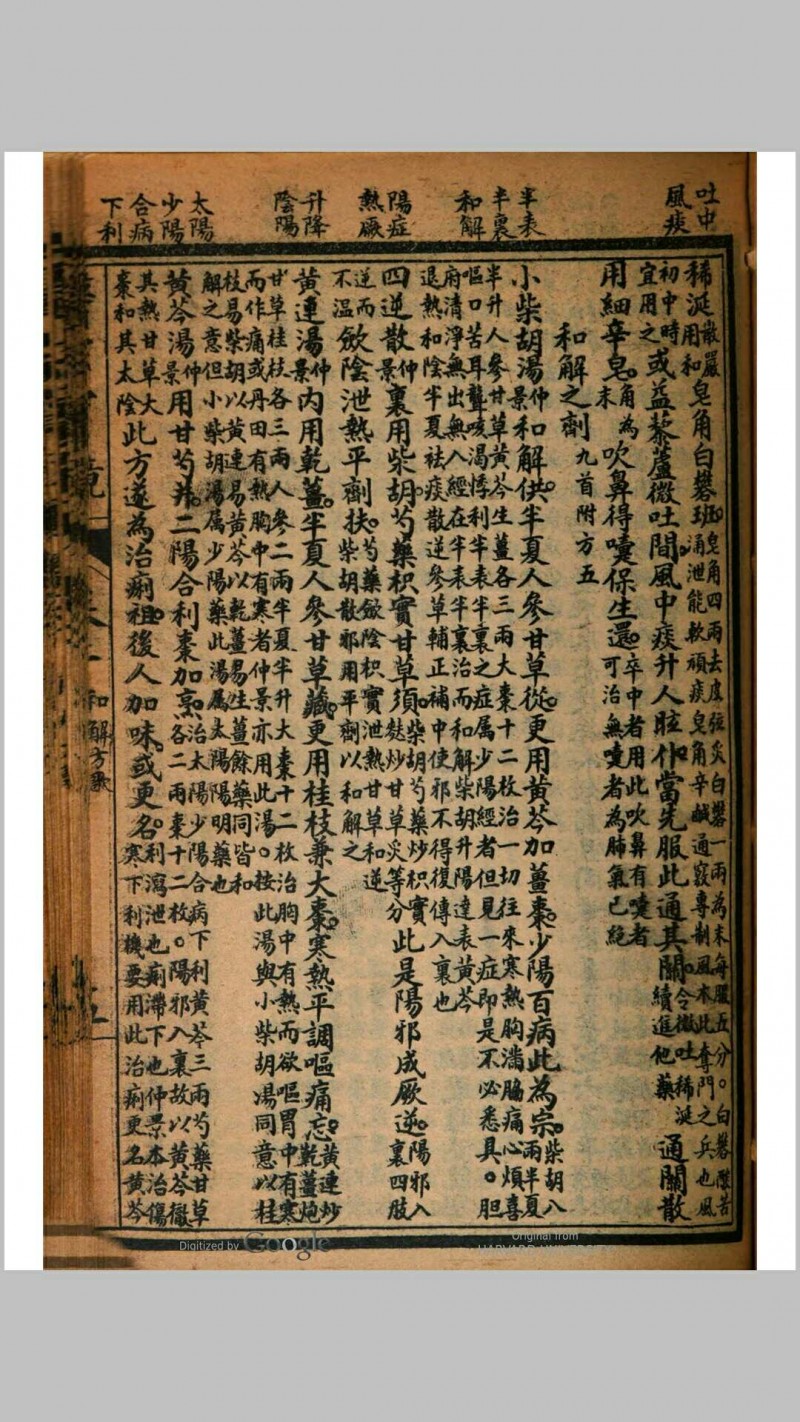 吐中風痰
半表半裏和解
陽症熱厥
升降陰陽
太陽少陽合病下利
稀涎散嚴用和皂角白礬班。皂角四兩去皮弦炙白礬一兩為末每服五分。白礬酸苦涌泄能軟頑痰皂角辛鹹通竅專制風木此奪門之兵也風
初中時宜用之或益藜蘆微吐間。風中痰升人眩仆。當先服此通其關。令微吐稀涎續進他藥通關散
用細辛皂。皂角為末吹鼻得嚏保生還。卒中者用此吹鼻有嚏者可治無嚏者為肺氣已絕
和解之劑九首附方五
小柴胡湯仲景和解供。半夏人參甘草從。更用黃芩加薑棗。少陽百病此為宗。柴胡八兩半夏
半升人參甘草黃芩生薑各三兩大棗十二枚治一切往來寒熱胸滿脇痛心煩喜
嘔口苦耳聾咳渴悸利半表半裏之症属少陽經者但見一症即是不必悉具。胆
府清淨無出無入經在半表半裏治而和解柴胡升陽達表黃芩
退熱和陰半夏祛痰散逆參草輔正補中使邪不得復傳入裏也
四逆散仲景裏用柴胡。芍藥枳實甘草須。柴胡芍藥炒枳實麩炒甘草炙等分此是陽邪成厥逆。陽邪入裏四肢
逆而不溫斂陰泄熱平劑扶。芍藥斂陰枳實泄熱甘草和逆柴胡散邪用平劑以和解之
黃連湯仲景內用乾薑。半夏人參甘草藏。更用桂枝兼大棗。寒熱平調嘔痛忘。黃連炒乾薑炮
甘草桂枝各三兩人參二兩半夏半升大棗十二枚治胸中有熱而欲嘔胃中有寒
而作痛或丹田有熱胸中有寒者仲景亦用此湯。按此湯與小柴胡湯同意以桂
枝易柴胡以黃連易黃芩以乾薑易生薑餘藥同皆和
解之意但小柴胡湯属少陽藥此湯属太陽陽明藥也
黃芩湯仲景用甘芍并。二陽合利棗加烹。治太陽少陽合病下利黃芩三兩芍藥甘草各二兩棗十二枚。陽邪入裏故以黃芩徹
其熱甘草大棗和其太陰此方遂為治痢祖。後人加味。或更名。利瀉泄也痢滯下也仲景本治傷寒下利機要用此治痢更名黃芩
和解方歌
Digitized by Google
Original from
HARVARD UNIVERSITY